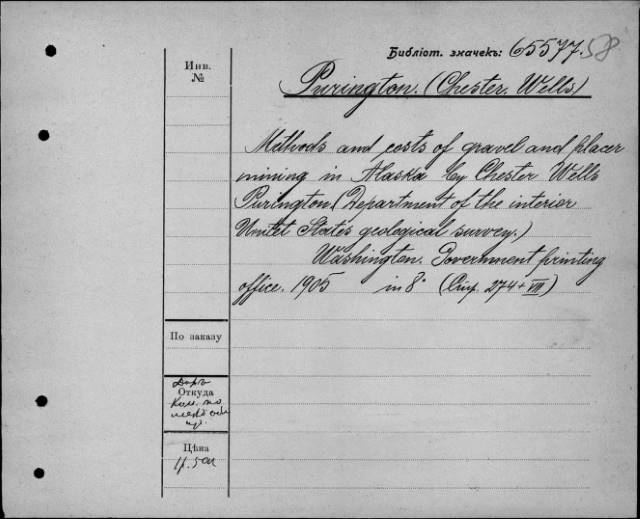 Библіот. значекъ: 65577.58
Инв.
№
Purington. (Chester. Wells)
Methods and costs of gravel and placer
mining in Alaska by Chester Wells
Purington (Department of the interior
Unitet States geological survey.)
Washington. Government printing
office. 1905 in 8° 274 + VII)
По заказу
Даръ
Откуда
Ком. по
Цѣна